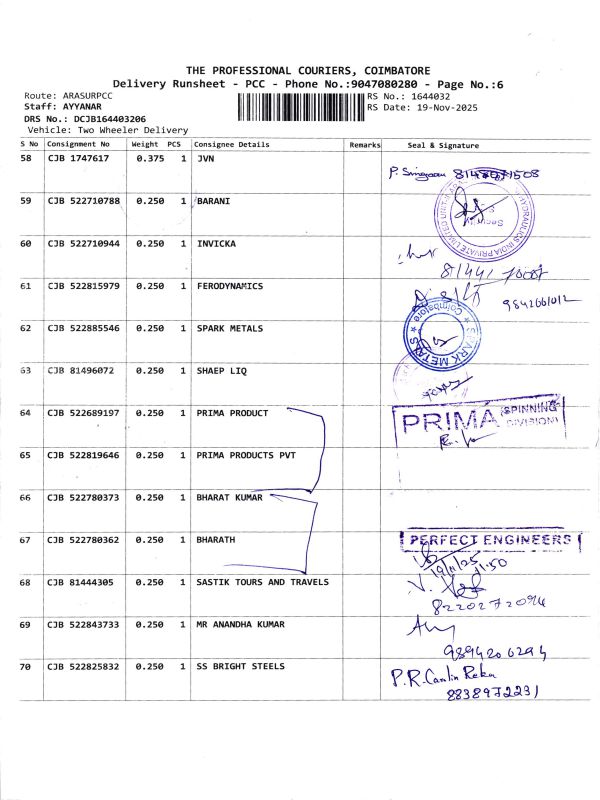 THE PROFESSIONAL COURIERS, COIMBATORE
Delivery Runsheet - PCC - Phone No.:9047080280 - Page No.:6
Route: ARASURPCC
RS No.: 1644032
Staff: AYYANAR
RS Date: 19-Nov-2025
DRS No.: DCJB164403206
Vehicle: Two Wheeler Delivery
S No Consignment No Weight PCS Consignee Details Remarks Seal & Signature
58 CJB 1747617 0.375 1 JVN
59 CJB 522710788 0.250 1 BARANI
HYDRAULICS INDIA PRIVATE LIMITED
Security
60 CJB 522710944 0.250 1 INVICKA
61 CJB 522815979 0.250 1 FERODYNAMICS
62 CJB 522885546 0.250 1 SPARK METALS
SPARK METALS
Coimbatore
63 CJB 81496072 0.250 1 SHAEP LIQ
64 CJB 522689197 0.250 1 PRIMA PRODUCT
PRIMA (SPINNING DIVISION)
65 CJB 522819646 0.250 1 PRIMA PRODUCTS PVT
66 CJB 522780373 0.250 1 BHARAT KUMAR
67 CJB 522780362 0.250 1 BHARATH
PERFECT ENGINEERS
19/11/25
11.50
68 CJB 81444305 0.250 1 SASTIK TOURS AND TRAVELS
8220272094
69 CJB 522843733 0.250 1 MR ANANDHA KUMAR
9894206294
70 CJB 522825832 0.250 1 SS BRIGHT STEELS
P.R.
8838972231